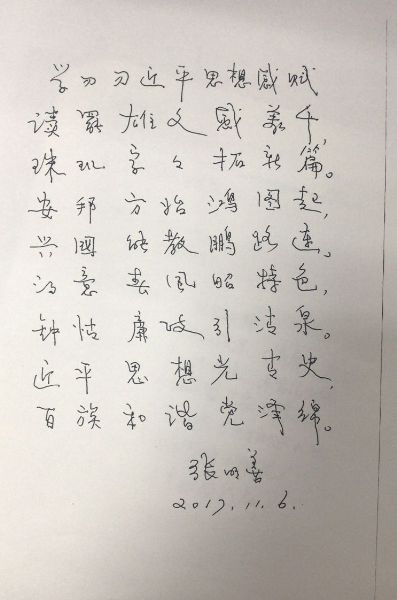 学习习近平思想感赋
读罢雄文感萬千,
珠玑字々拓新篇。
安邦方始鸿图起,
兴國能教鹏路连。
得意春风昭特色,
钟情廉政引清泉。
近平思想光青史,
百族和谐党泽绵。
张明善
2017.11.6.